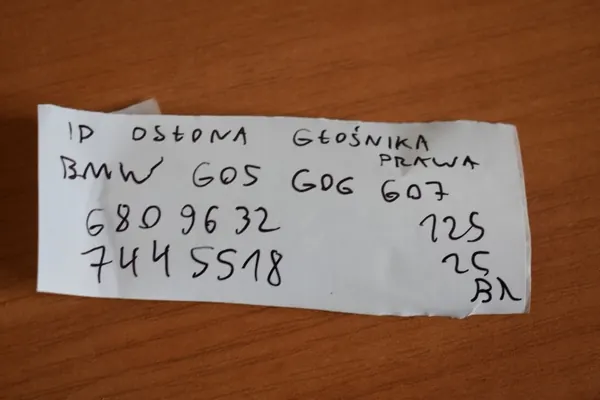 ID OSŁONA GŁOŚNIKA
PRAWA
BMW G05 G06 G07
6809632 125
7445518 25
BR